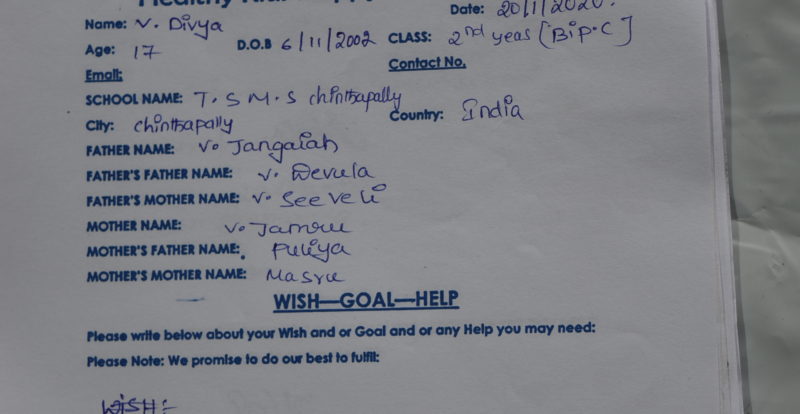 Date: 20/1/2020.
Name: V. Divya
Age: 17 D.O.B 6/11/2002 CLASS: 2nd years [BiP.C]
Email: Contact No.
SCHOOL NAME: T.S M.S chinthapally
City: chinthapally Country: India
FATHER NAME: V. Jangaiah
FATHER'S FATHER NAME: V. Devula
FATHER'S MOTHER NAME: V. Seeveli
MOTHER NAME: V. Jamru
MOTHER'S FATHER NAME: Puliya
MOTHER'S MOTHER NAME: Masru
WISH—GOAL—HELP
Please write below about your Wish and or Goal and or any Help you may need:
Please Note: We promise to do our best to fulfil:
WISH:-